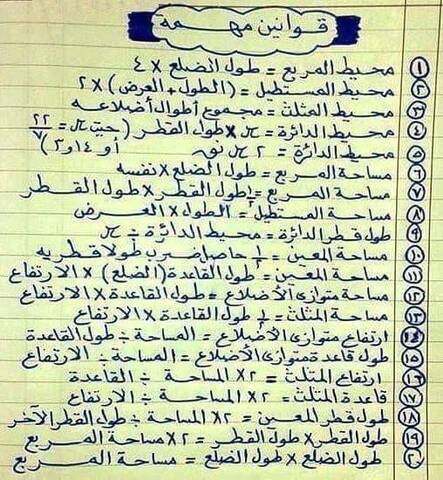 قوانين مهمة
١ محيط المربع = طول الضلع × ٤
٢ محيط المستطيل = (الطول + العرض) × ٢
٣ محيط المثلث = مجموع أطوال أضلاعه
٤ محيط الدائرة = π × طول القطر (حيث π = ٢٢/٧
٥ محيط الدائرة = ٢ π نق أو ٣,١٤)
٦ مساحة المربع = طول الضلع × نفسه
٧ مساحة المربع = ١/٢ طول القطر × طول القطر
٨ مساحة المستطيل = الطول × العرض
٩ طول قطر الدائرة = محيط الدائرة ÷ π
١٠ مساحة المعين = ١/٢ حاصل ضرب طولا قطريه
١١ مساحة المعين = طول القاعدة (الضلع) × الارتفاع
١٢ مساحة متوازى الأضلاع = طول القاعدة × الارتفاع
١٣ مساحة المثلث = ١/٢ طول القاعدة × الارتفاع
١٤ ارتفاع متوازى الأضلاع = المساحة ÷ طول القاعدة
١٥ طول قاعدة متوازى الأضلاع = المساحة ÷ الارتفاع
١٦ ارتفاع المثلث = ٢× المساحة ÷ القاعدة
١٧ قاعدة المثلث = ٢× المساحة ÷ الارتفاع
١٨ طول قطر المعين = ٢× المساحة ÷ طول القطر الآخر
١٩ طول القطر × طول القطر = ٢× مساحة المربع
٢٠ طول الضلع × طول الضلع = مساحة المربع